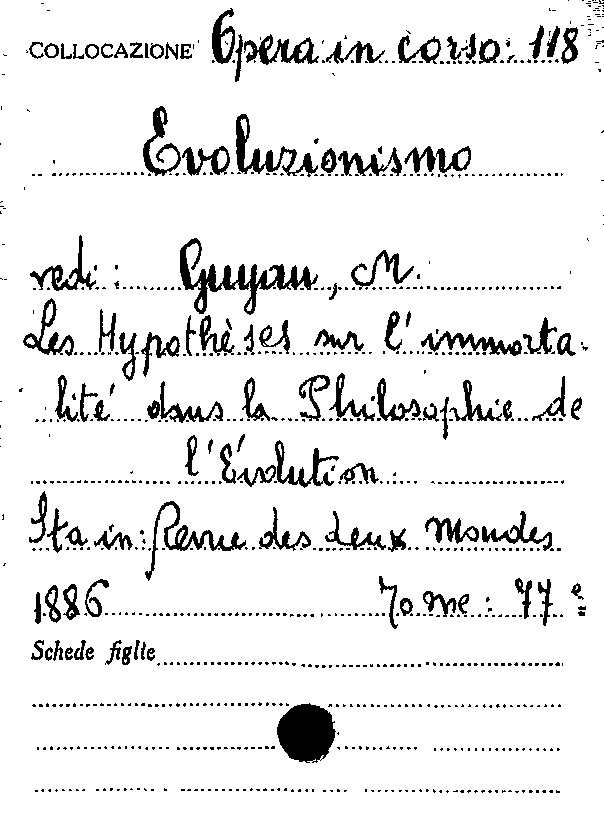 COLLOCAZIONE Opera in corso: 118
Evoluzionismo
vedi: Guyau, M.
Les Hypothèses sur l'immorta-
lité dans la Philosophie de
l'Évolution
Sta in: Revue des deux Mondes
1886 Tome: 77e
Schede figlie